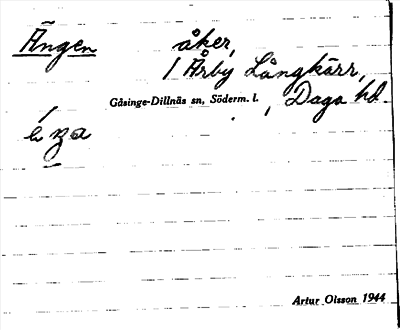 Ängen åker,
/ Årby Långkärr,
Gåsinge-Dillnäs sn, Söderm. l. , Daga hd.
Artur Olsson 1944